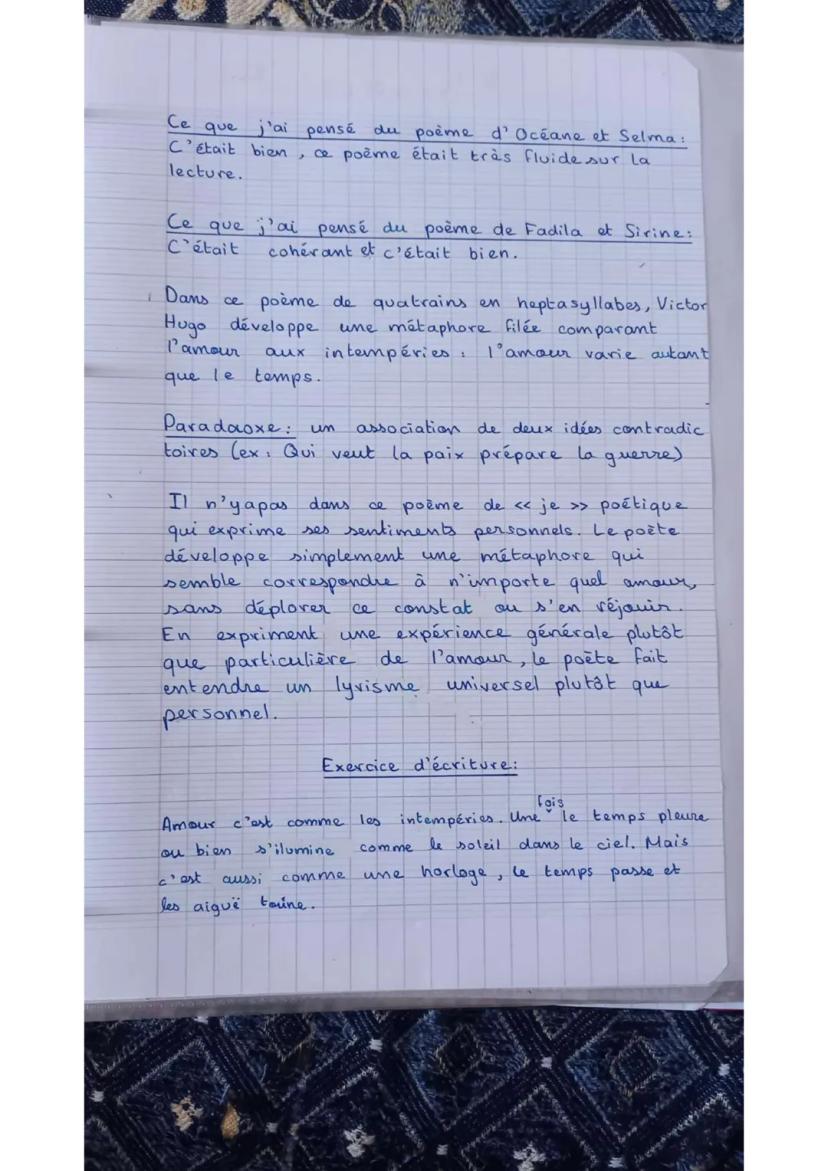 Ce que j'ai pensé du poème d'Océane et Selma :
C'était bien, ce poème était très fluide sur la
lecture.
Ce que j'ai pensé du poème de Fadila et Sirine :
C'était cohérant et c'était bien.
Dans ce poème de quatrains en heptasyllabes, Victor
Hugo développe une métaphore filée comparant
l'amour aux intempéries : l'amour varie autant
que le temps.
Paradaoxe : un association de deux idées contradic
toires (ex : Qui veut la paix prépare la guerre)
Il n'yapas dans ce poème de << je >> poétique
qui exprime ses sentiments personnels. Le poète
développe simplement une métaphore qui
semble correspondre à n'importe quel amour,
sans déplorer ce constat ou s'en réjouir.
En expriment une expérience générale plutôt
que particulière de l'amour, le poète fait
entendre un lyrisme universel plutôt que
personnel.
Exercice d'écriture :
Amour c'est comme les intempéries. Une fois le temps pleure
ou bien s'ilumine comme le soleil dans le ciel. Mais
c'est aussi comme une horloge, le temps passe et
les aiguë tourne.